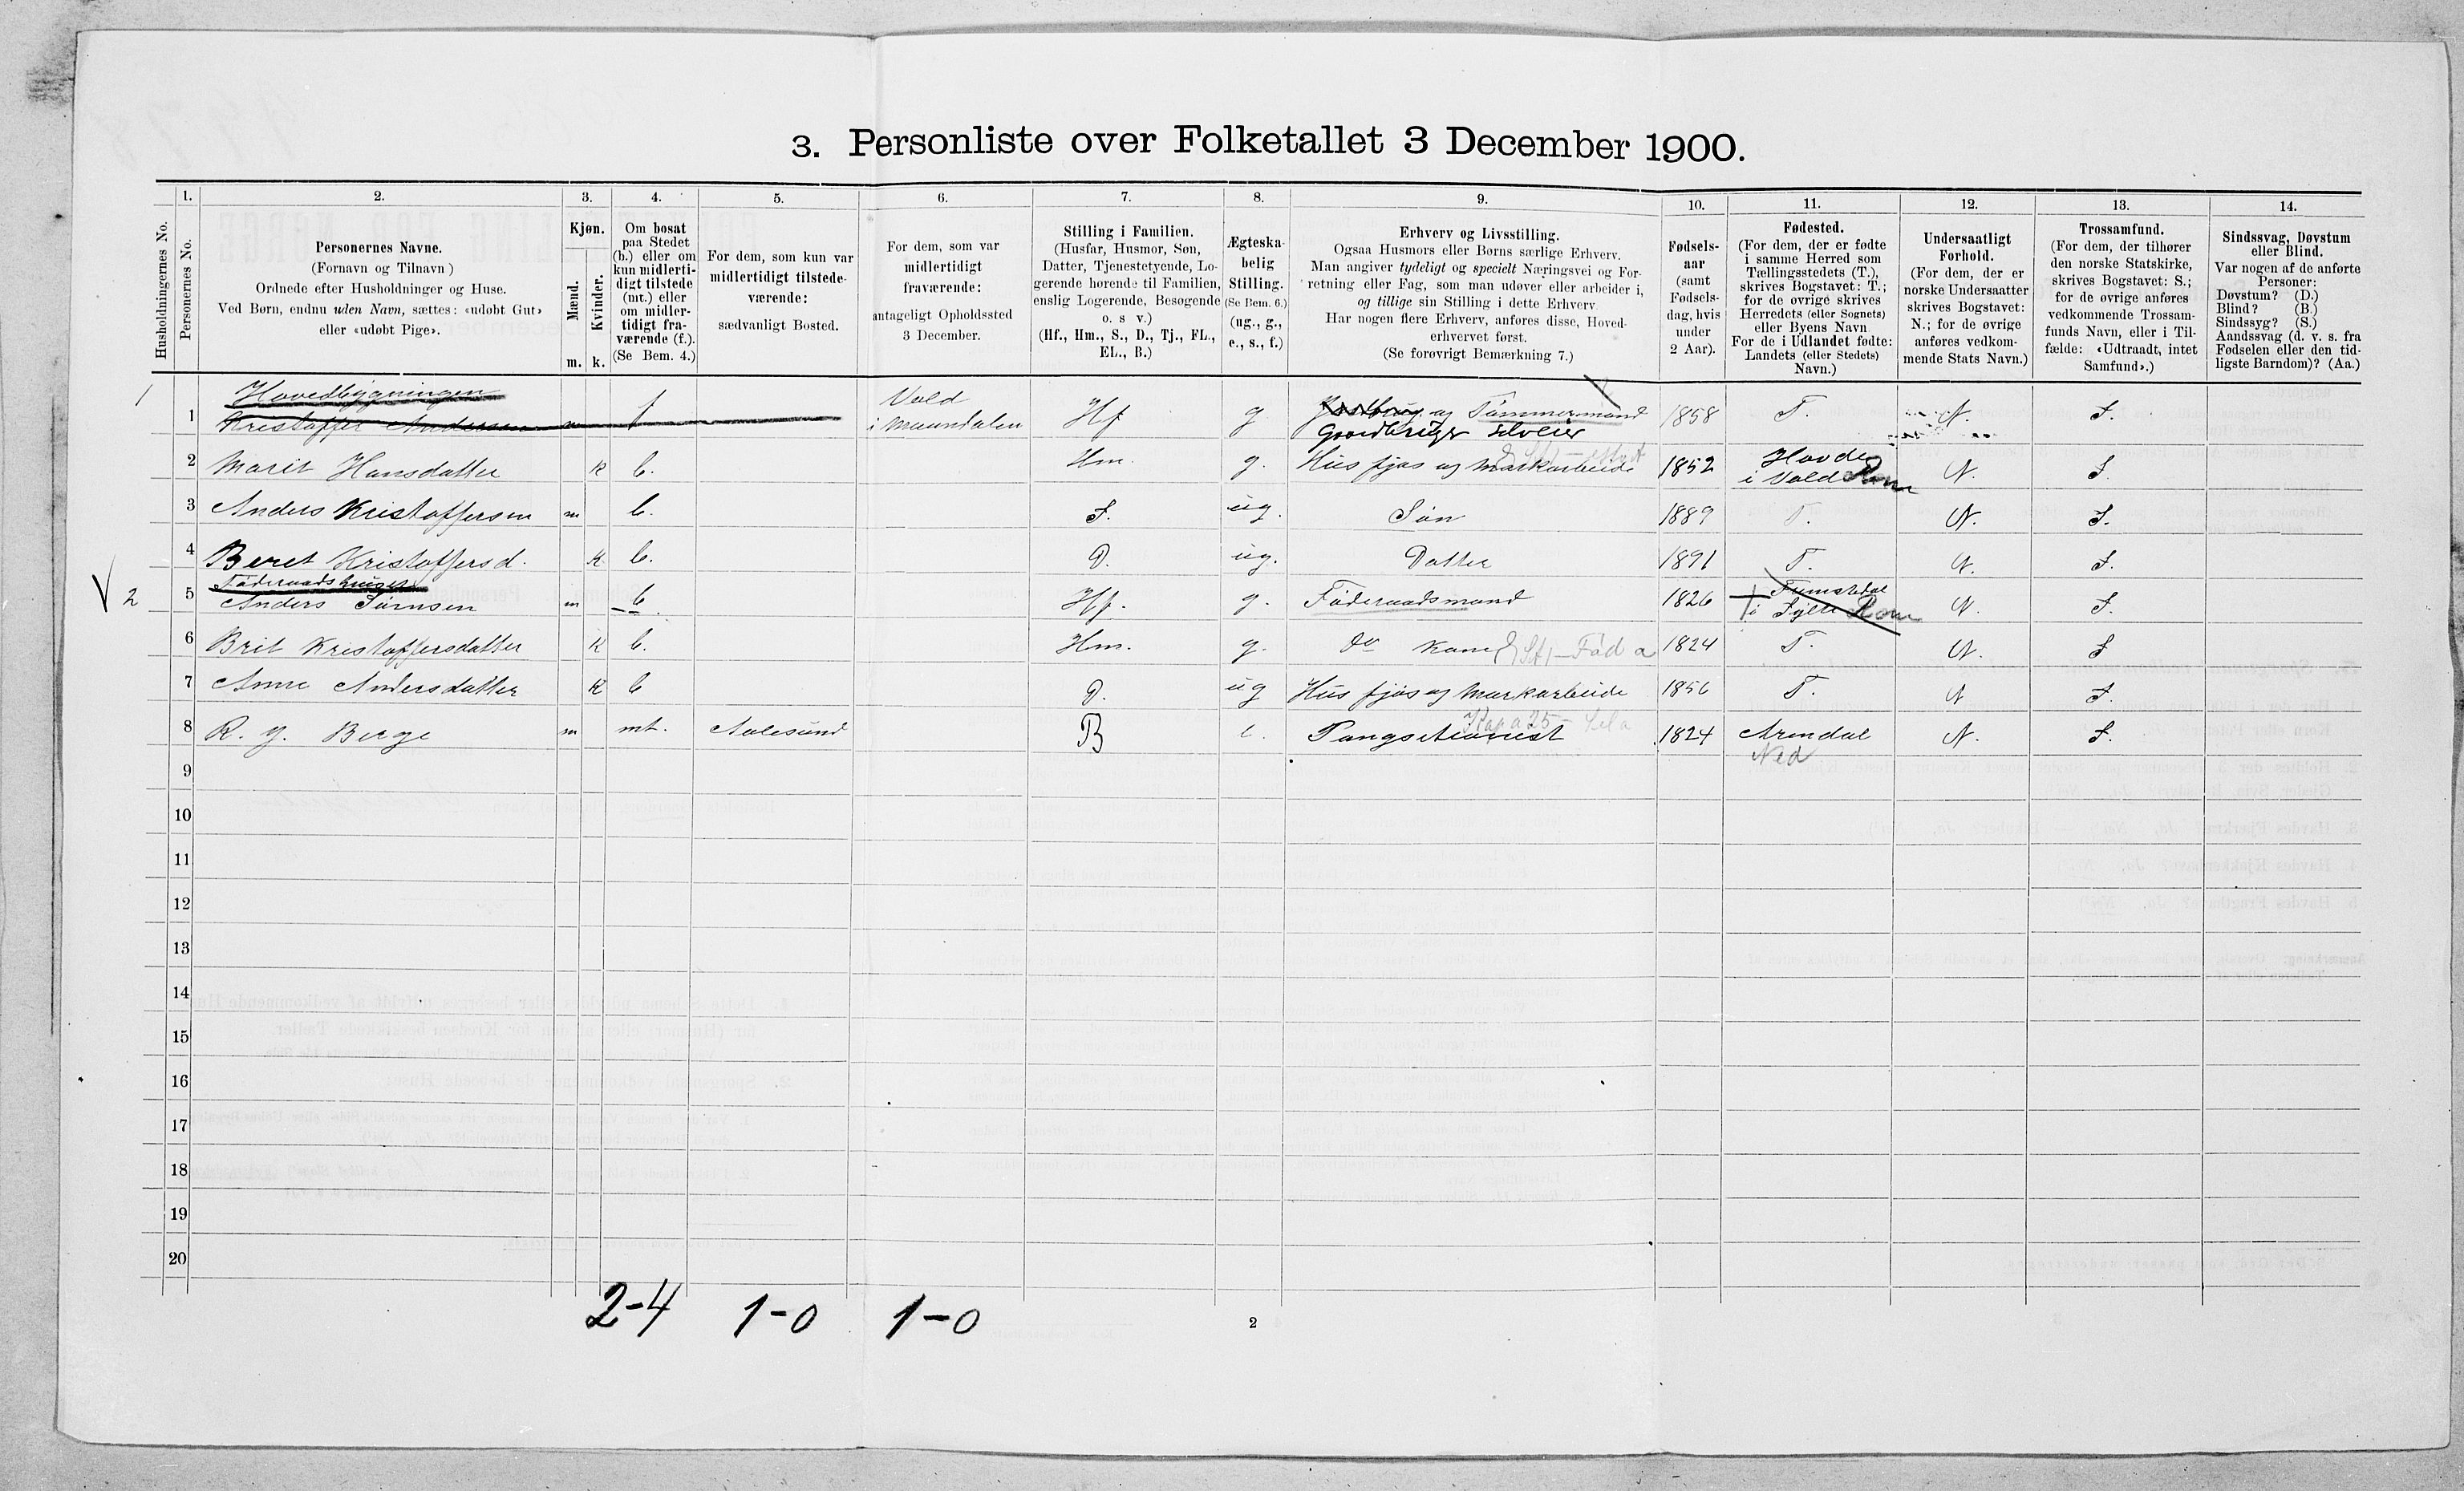 3. Personliste over Folketallet 3 December 1900.
1.
2.
3.
4.
5.
6.
7.
8.
9.
10.
11.
12.
13.
14.
Husholdningernes No.
Personernes No.
Personernes Navne.
(Fornavn og Tilnavn )
Ordnede efter Husholdninger og Huse.
Ved Børn, endnu uden Navn, sættes: «udøbt Gut»
eller «udøbt Pige».
Kjøn.
Mænd.
Kvinder.
m. k.
Om bosat
paa Stedet
(b.) eller om
kun midlerti-
digt tilstede
(mt.) eller
om midler-
tidigt fra-
værende (f.).
(Se Bem. 4.)
For dem, som kun var
midlertidigt tilstede-
værende:
sædvanligt Bosted.
For dem, som var
midlertidigt
fraværende:
antageligt Opholdssted
3 December.
Stilling i Familien.
(Husfar, Husmor, Søn,
Datter, Tjenestetyende, Lo-
gerende hørende til Familien,
enslig Logerende, Besøgende
o. s v.)
(Hf., Hm., S., D., Tj., FL.,
EL., B.)
Ægteska-
belig
Stilling.
(Se Bem. 6.)
(ug., g.,
e., s., f.)
Erhverv og Livsstilling.
Ogsaa Husmors eller Børns særlige Erhverv.
Man angiver tydeligt og specielt Næringsvei og For-
retning eller Fag, som man udøver eller arbeider i,
og tillige sin Stilling i dette Erhverv
Har nogen flere Erhverv, anføres disse, Hoved-
erhvervet først.
(Se forøvrigt Bemærkning 7.)
Fødsels-
aar
(samt
Fødsels-
dag, hvis
under
2 Aar).
Fødested.
(For dem, der er fødte
i samme Herred som
Tællingsstedets (T.),
skrives Bogstavet: T.;
for de øvrige skrives
Herredets (eller Sognets)
eller Byens Navn
For de i Udlandet fødte:
Landets (eller Stedets)
Navn.)
Undersaatligt
Forhold.
(For dem, der er
norske Undersaatter
skrives Bogstavet:
N.; for de øvrige
anføres vedkom-
mende Stats Navn.)
Trossamfund.
(For dem, der tilhører
den norske Statskirke,
skrives Bogstavet: S.;
for de øvrige anføres
vedkommende Trossam-
funds Navn, eller i Til-
fælde: «Udtraadt, intet
Samfund».)
Sindssvag, Døvstum
eller Blind.
Var nogen af de anførte
Personer:
Døvstum? (D.)
Blind? (B.)
Sindssyg? (S.)
Aandssvag (d. v. s. fra
Fødselen eller den tid-
ligste Barndom)? (Aa.)
Hovedbygningen
1 1 Kristoffer Andersen m f Vold i Maandalen Hf g og Tømmermand 1858 T. N. S.
Gaardbruger Selveier
2 Marit Hansdatter k b. Hm. g. Hus fjøs og Markarbeide 1852 Hovde i Vold Rom N. S.
3 Anders Kristoffersen m b. S. ug. Søn 1889 T. N. S.
4 Beret Kristoffersd. k b. D. ug. Datter 1891 T. N. S.
Føderaadshuset
2 5 Anders Sørnsen m b Hf. g. Føderaadsmand 1826 i Sylte Rom N. S.
6 Brit Kristoffersdatter k b. Hm. g. do Kone Fød a 1824 T. N. S
7 Anne Andersdatter k b D. ug Hus fjøs og Markarbeide 1856 T. N S.
8 R. G. Berge m mt. Aalesund B e. 1824 Arendal N. S.
Ned
9
10
11
12
13
14
15
16
17
18
19
20
2-4 1-0 1-0
2